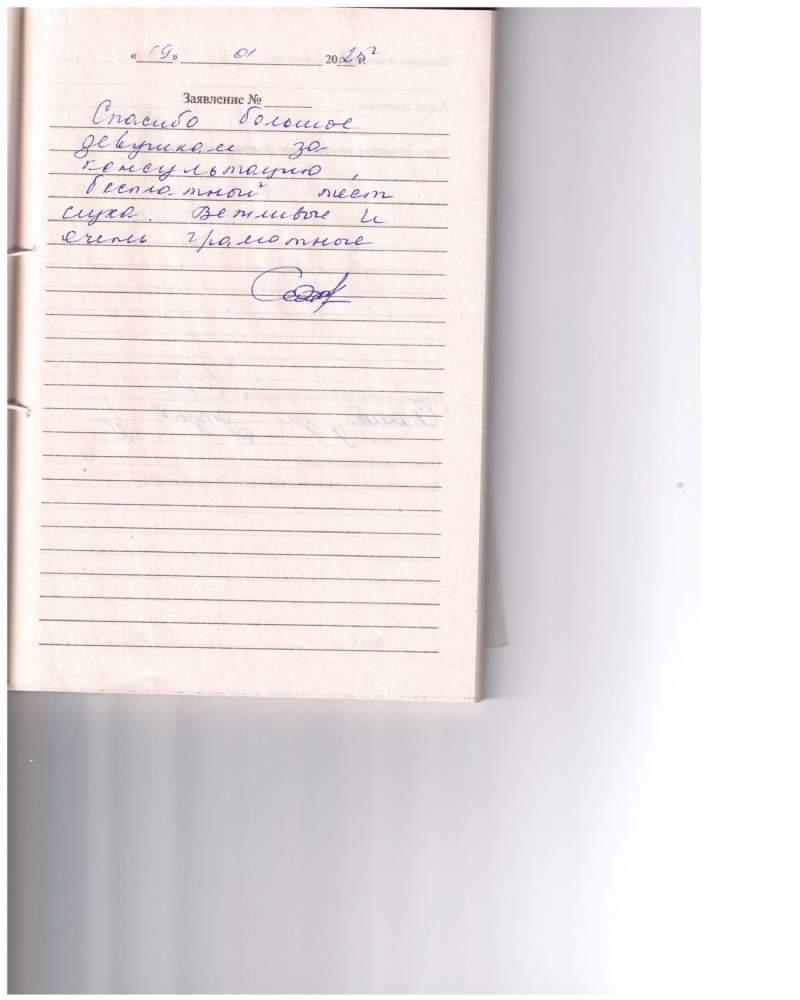 «19» 01 2025 г.
Заявление №
Спасибо большое
девушкам за
консультацию,
бесплатный тест
слуха. Вежливые и
очень грамотные